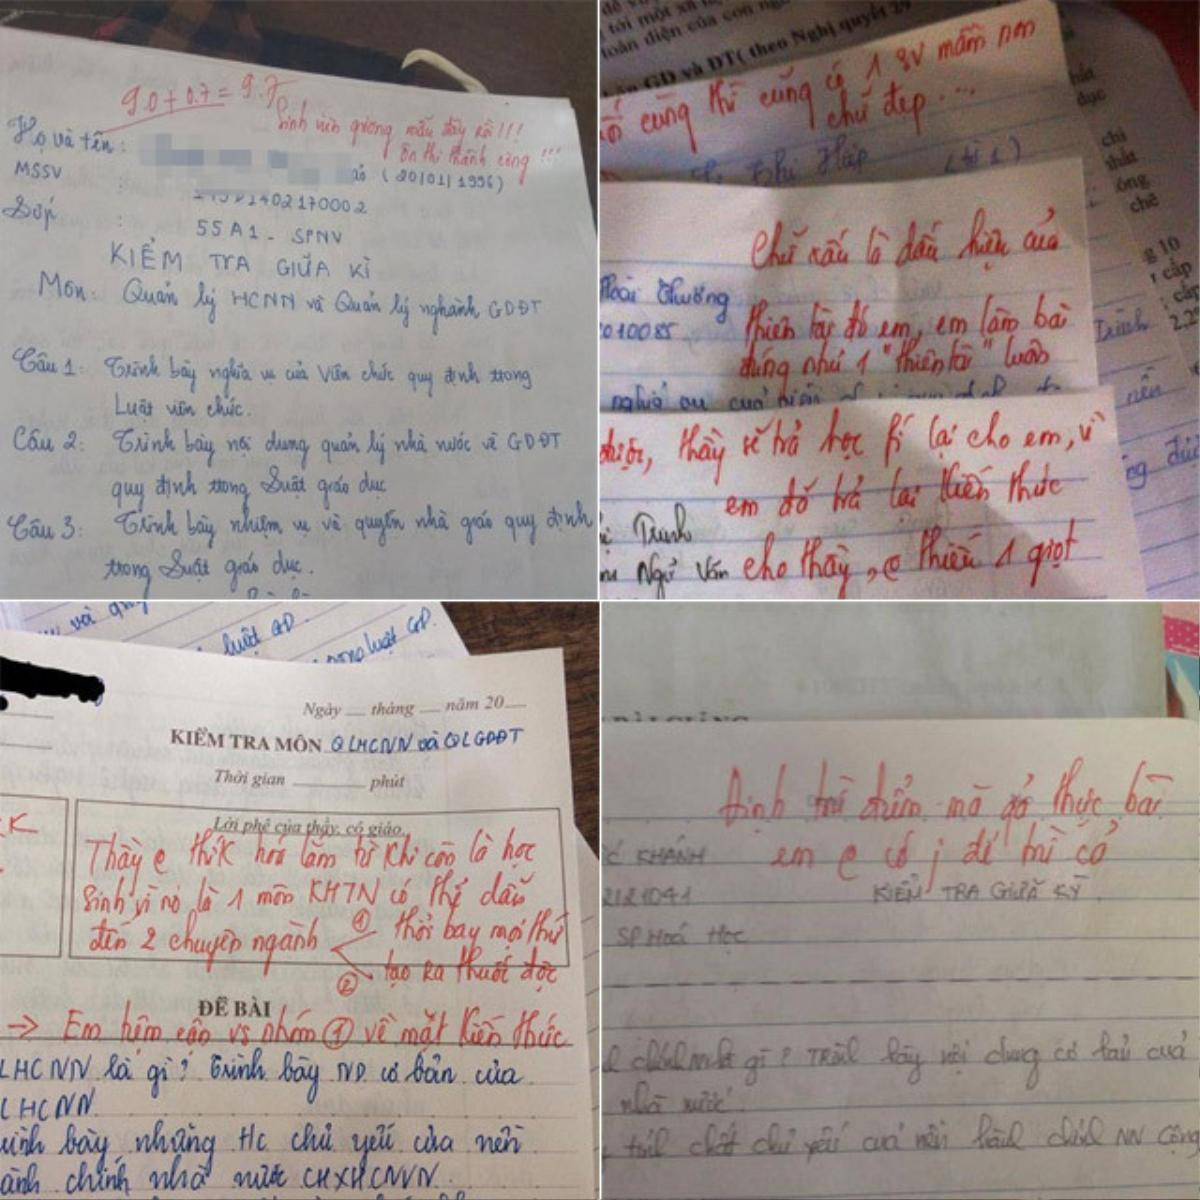 9.0 + 0.7 = 9.7
Sinh viên gương mẫu đây rồi!!!
Ôn thi thành công !!!
Họ và tên:
(20/01/1996)
MSSV
1402170002
Lớp
55A1 - SPNV
KIỂM TRA GIỮA KÌ
Môn: Quản lý HCNN và Quản lý nghành GDĐT
Câu 1: Trình bày nghĩa vụ của Viên chức quy định trong
Luật viên chức.
Câu 2: Trình bày nội dung quản lý nhà nước về GDĐT
quy định trong Luật giáo dục
Câu 3: Trình bày nhiệm vụ và quyền nhà giáo quy định
trong Luật giáo dục.
tới một xã
toàn diện của con
GD và ĐT( theo Nghị quyết 29
cùng thì cũng có 1 sv mầm non
chữ đẹp ...
Thị Hấp (tờ 1)
Chữ xấu là dấu hiệu của
Hoài Thương
thiên tài đó em, em làm bài
010085
đúng như 1 "thiên tài" luôn
được, thầy sẽ trả học fí lại cho em, vì
em đó trả lại kiến thức
Trinh
Ngữ Văn
cho thầy, e thiếu 1 giọt
chi
nhất
ông
chẽ
g 10
cấp
cấp
2,2
Trình
nên
và
luật GD.
luật GD.
Ngày __ tháng __ năm 20__
KIỂM TRA MÔN QLHCNN và QLGDĐT
Thời gian ________ phút
Lời phê của thầy, cô giáo.
Thầy e thik hoá lắm từ khi còn là học
sinh vì nó là 1 môn KHTN có thể dẫn
đến 2 chuyên ngành
① thổi bay mọi thứ
② tạo ra thuốc độc
ĐỀ BÀI
→ Em hêm cận vs nhóm ① về mặt kiến thức
LHCNN là gì? Trình bày ND cơ bản của
LHCNN
bày những Hc chủ yếu của nền
ành chính nhà nước CHXHCNVN.
Định trừ điểm mà đọc thực bài
em e có j để trừ cả
KHÁNH
KIỂM TRA GIỮA KỲ
2121041
SP Hoá Học
gì? Trình bày nội dung cơ bản của
nhà nước.
tính chất chủ yếu của nền hành chính NN Cộng